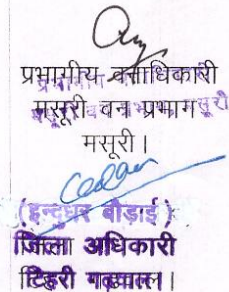 प्रभागीय वनाधिकारी
मसूरी वन प्रभाग
मसूरी।
(इन्दुधर बौड़ाई)
जिला अधिकारी
टिहरी गढ़वाल।